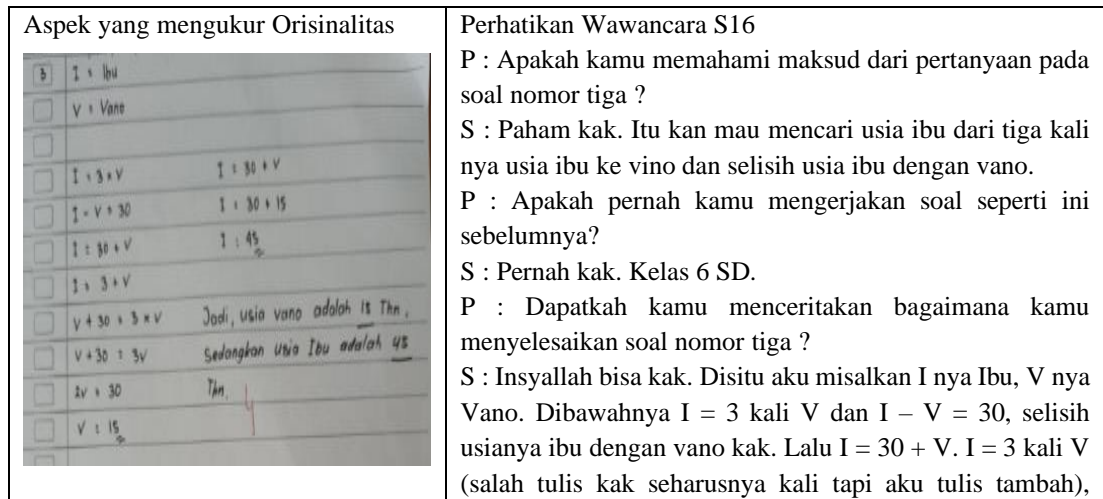 Aspek yang mengukur Orisinalitas
3 I = Ibu
V = Vano
I = 3 x V
I - V = 30
I = 30 + V
I = 3 + V
V + 30 = 3 x V
V + 30 = 3V
2V = 30
V = 15
I = 30 + V
I = 30 + 15
I = 45
Jadi, usia vano adalah 15 Thn,
Sedangkan usia Ibu adalah 45
Thn.
4
Perhatikan Wawancara S16
P : Apakah kamu memahami maksud dari pertanyaan pada
soal nomor tiga ?
S : Paham kak. Itu kan mau mencari usia ibu dari tiga kali
nya usia ibu ke vino dan selisih usia ibu dengan vano.
P : Apakah pernah kamu mengerjakan soal seperti ini
sebelumnya?
S : Pernah kak. Kelas 6 SD.
P : Dapatkah kamu menceritakan bagaimana kamu
menyelesaikan soal nomor tiga ?
S : Insyallah bisa kak. Disitu aku misalkan I nya Ibu, V nya
Vano. Dibawahnya I = 3 kali V dan I – V = 30, selisih
usianya ibu dengan vano kak. Lalu I = 30 + V. I = 3 kali V
(salah tulis kak seharusnya kali tapi aku tulis tambah),